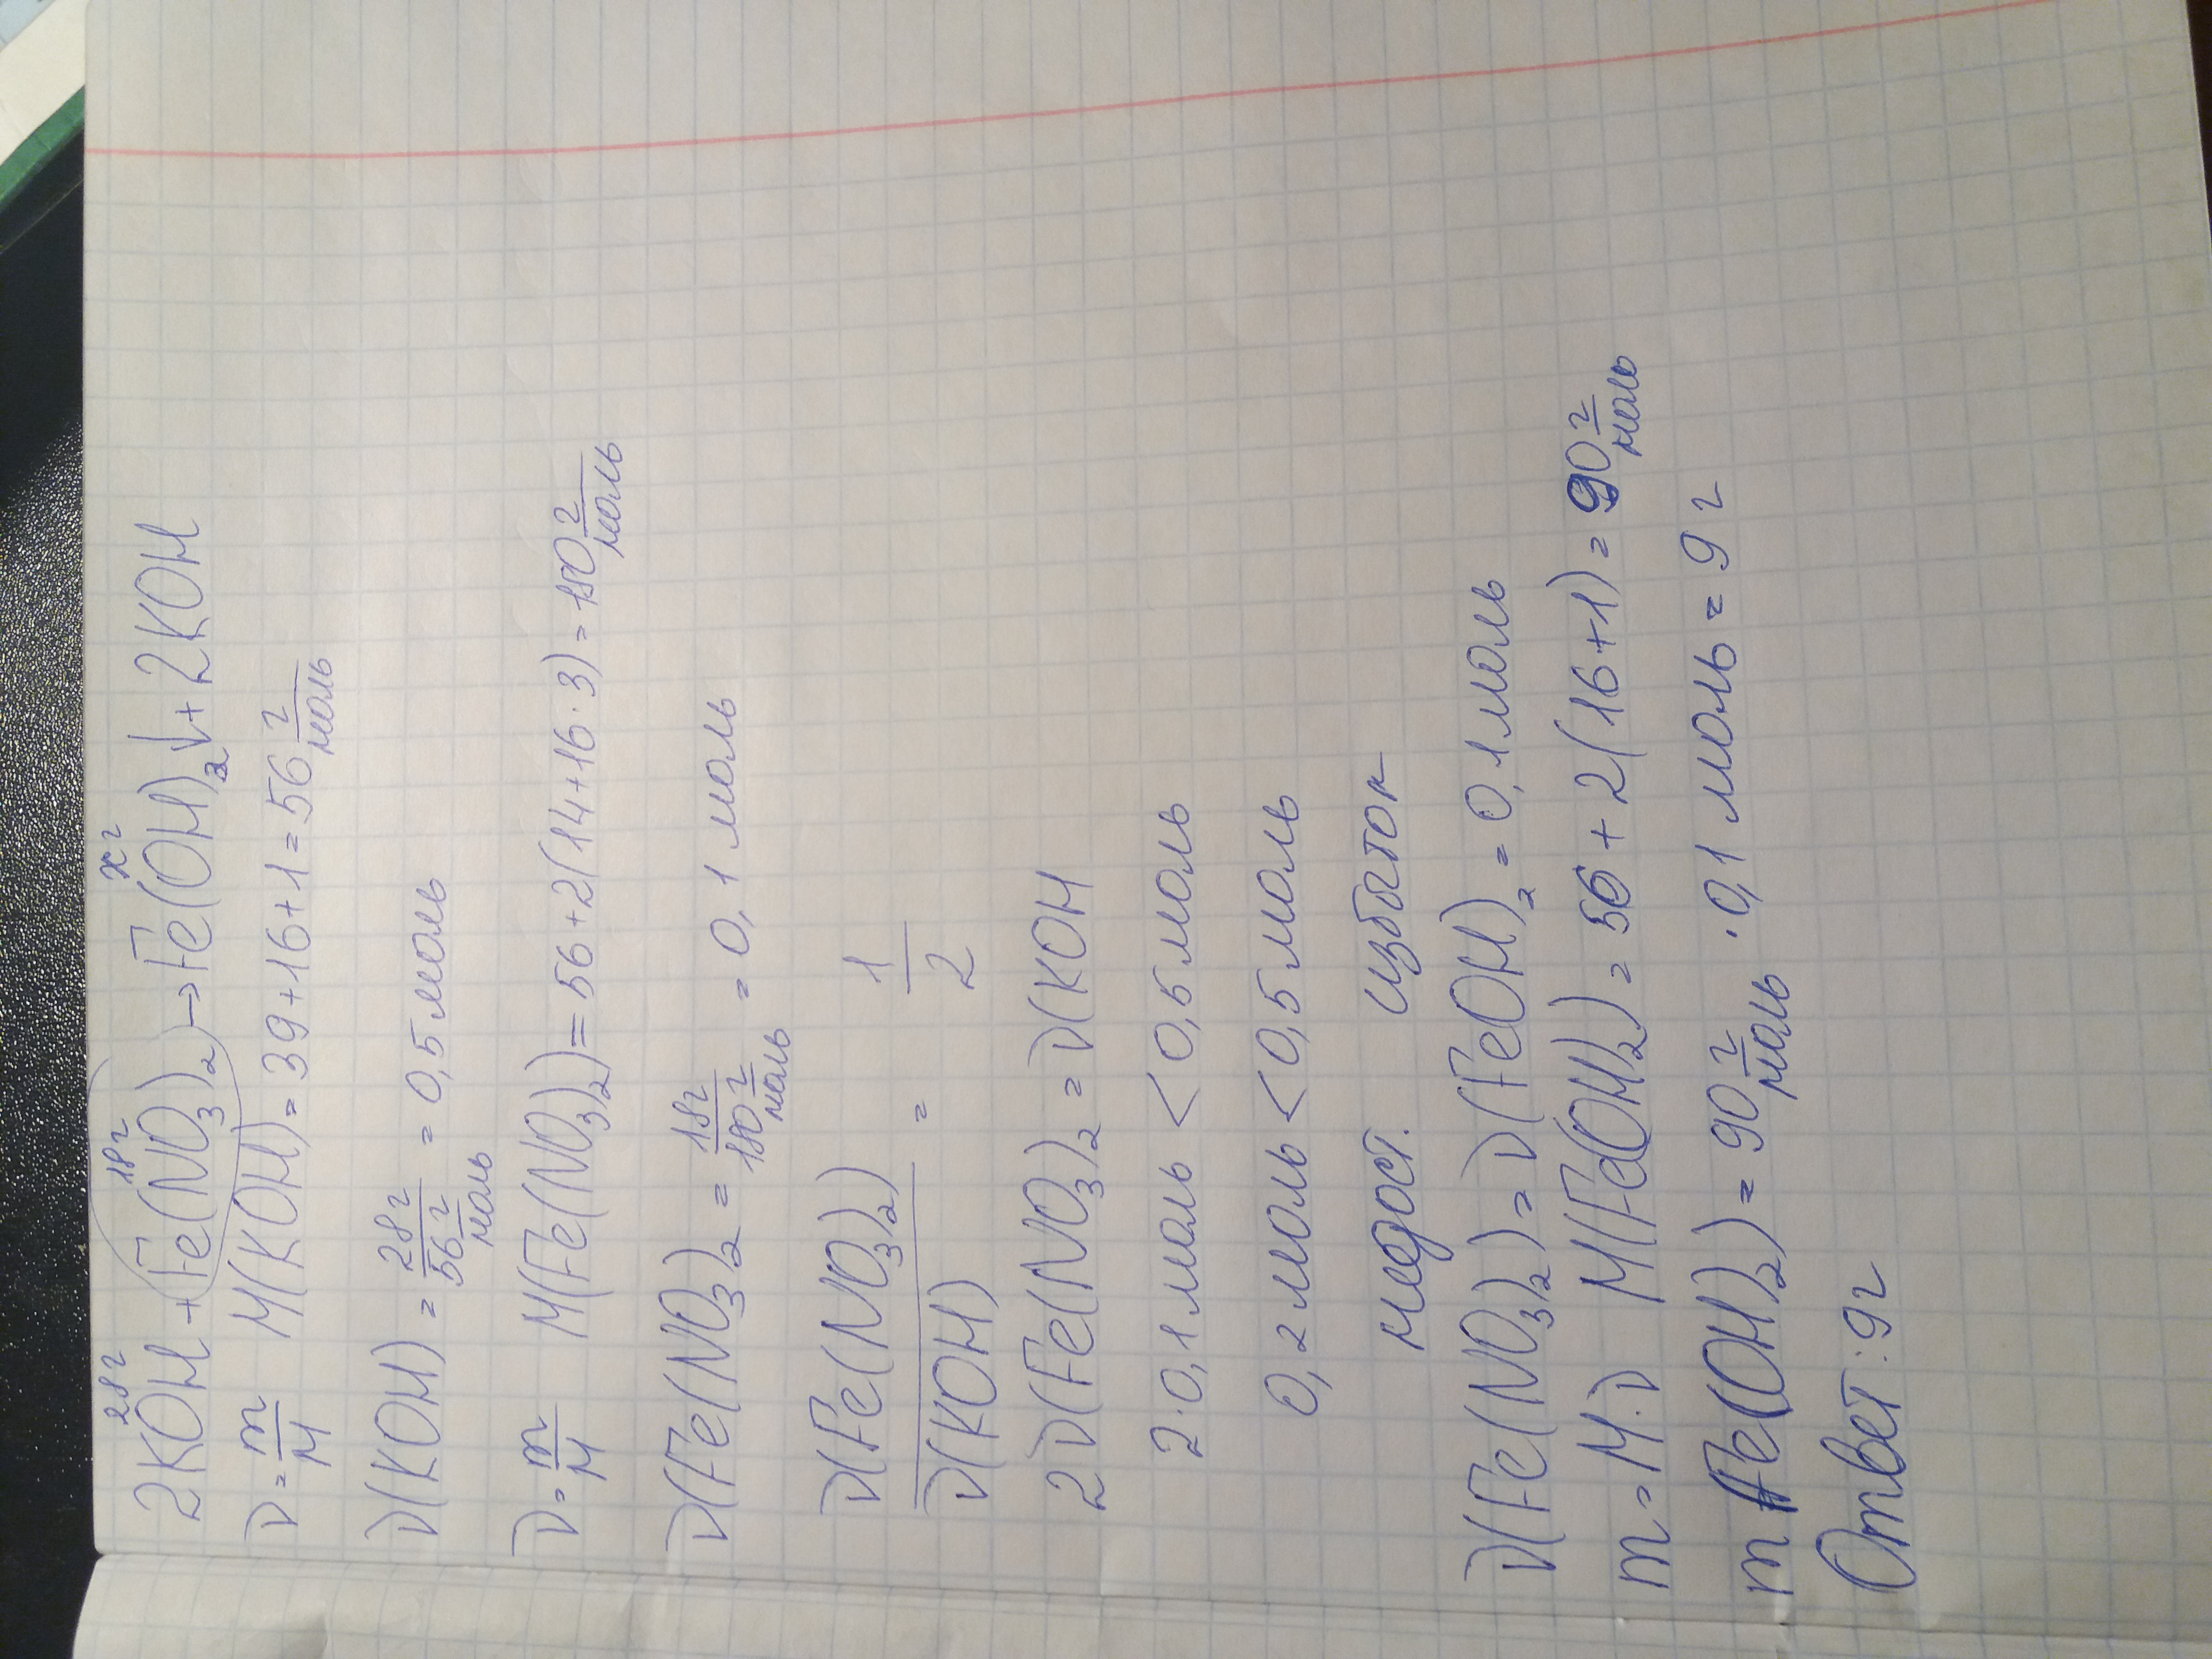 28г 18г х г
2KOH + Fe(NO₃)₂ → Fe(OH)₂↓ + 2KOH
ν = m/M M(KOH) = 39+16+1 = 56 г/моль
ν(KOH) = 28г/56 г/моль = 0,5 моль
ν = m/M M(Fe(NO₃)₂) = 56+2(14+16·3) = 180 г/моль
ν(Fe(NO₃)₂ = 18г/180 г/моль = 0,1 моль
ν(Fe(NO₃)₂)/ν(KOH) = 1/2
2ν(Fe(NO₃)₂ = ν(KOH
2·0,1 моль < 0,5 моль
0,2 моль < 0,5 моль
недост. избыток
ν(Fe(NO₃)₂) = ν(FeOH)₂ = 0,1 моль
m = M·ν M(Fe(OH)₂) = 56 + 2(16+1) = 90 г/моль
m Fe(OH)₂) = 90 г/моль · 0,1 моль = 9 г
Ответ: 9г